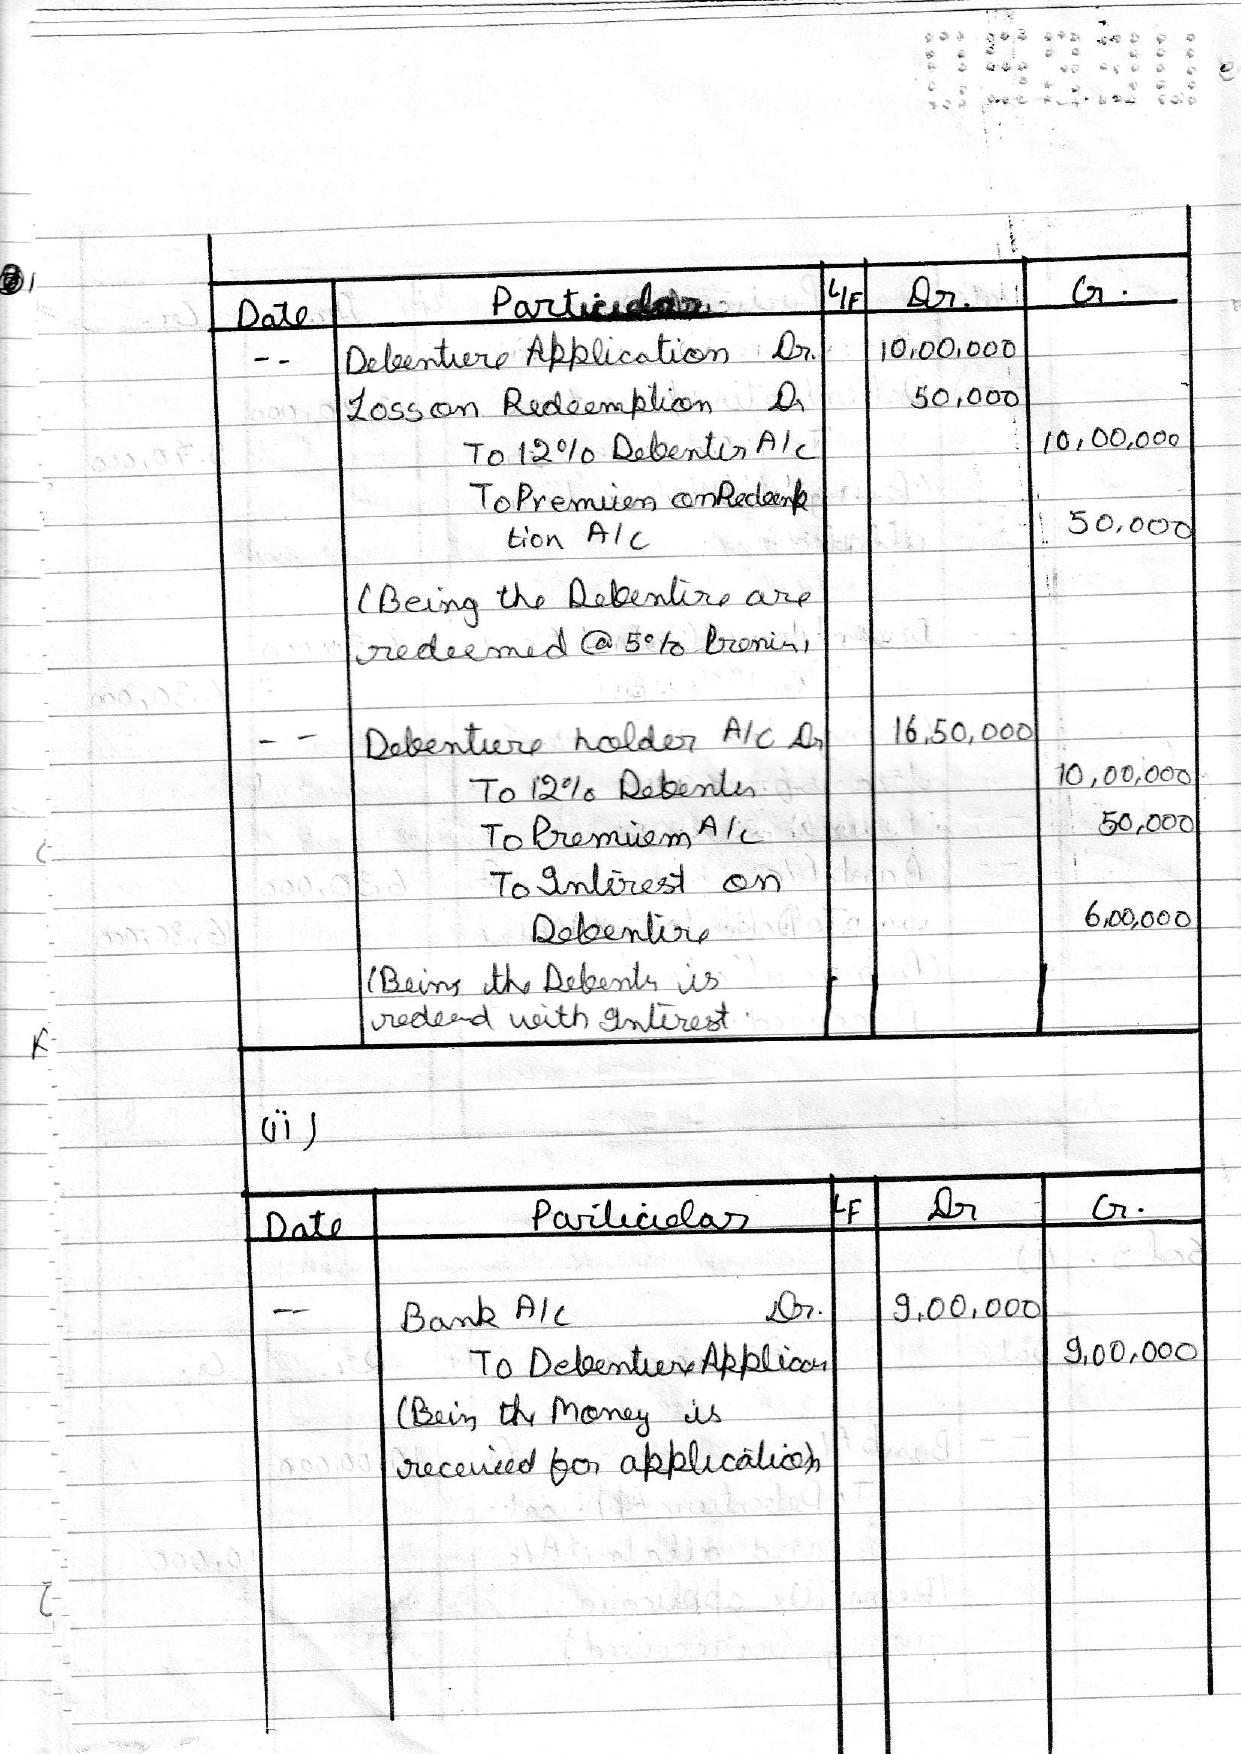 Date Particular L/F Dr. Cr.
-- Debenture Application Dr. 10,00,000
Loss on Redeemption Dr 50,000
To 12% Debenter A/c 10,00,000
To Premium on Redemp
tion A/c 50,000
(Being the Debenture are
redeemed @ 5% Premium
-- Debenture holder A/c Dr 16,50,000
To 12% Debenter 10,00,000
To Premium A/c 50,000
To Interest on
Debenture 6,00,000
(Being the Debentr is
redeemd with Interest.
(ii)
Date Particular LF Dr Cr.
-- Bank A/c Dr. 9,00,000
To Debenture Applican 9,00,000
(Bein the Money is
received for application)